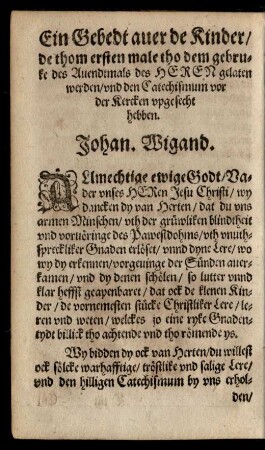 Ein Gebedt auer de Kinder/
de thom ersten male tho dem gebru-
ke des Auendtmals des HEREN gelaten
werden/vnd den Catechismum vor
der Kercken vpgesecht
hebben.
Johan. Wigand.
ALlmechtige ewige Godt/Va-
der vnses HERen Jesu Christi/wy
dancken dy van Herten/dat du vns
armen Minschen/vth der grüwliken blindtheit
vnd vorvöringe des Pawestdohms/vth vnuth-
spreckliker Gnaden erlöset/vnnd dyne Lere/wo
wy dy erkennen/vorgeuinge der Sünden auer-
kamen/vnd dy denen schölen/so lutter vnnd
klar heffst geapenbaret/dat ock de klenen Kin-
der/de vornemesten stücke Christliker Lere/le-
ren vnd weten/welckes jo eine ryke Gnaden-
tydt billick tho achtende vnd tho römende ys.
Wy bidden dy ock van Herten/du willest
ock sölcke warhafftige/tröstlike vnd salige Lere/
vnd den hilligen Catechismum by vns erhol-
den/